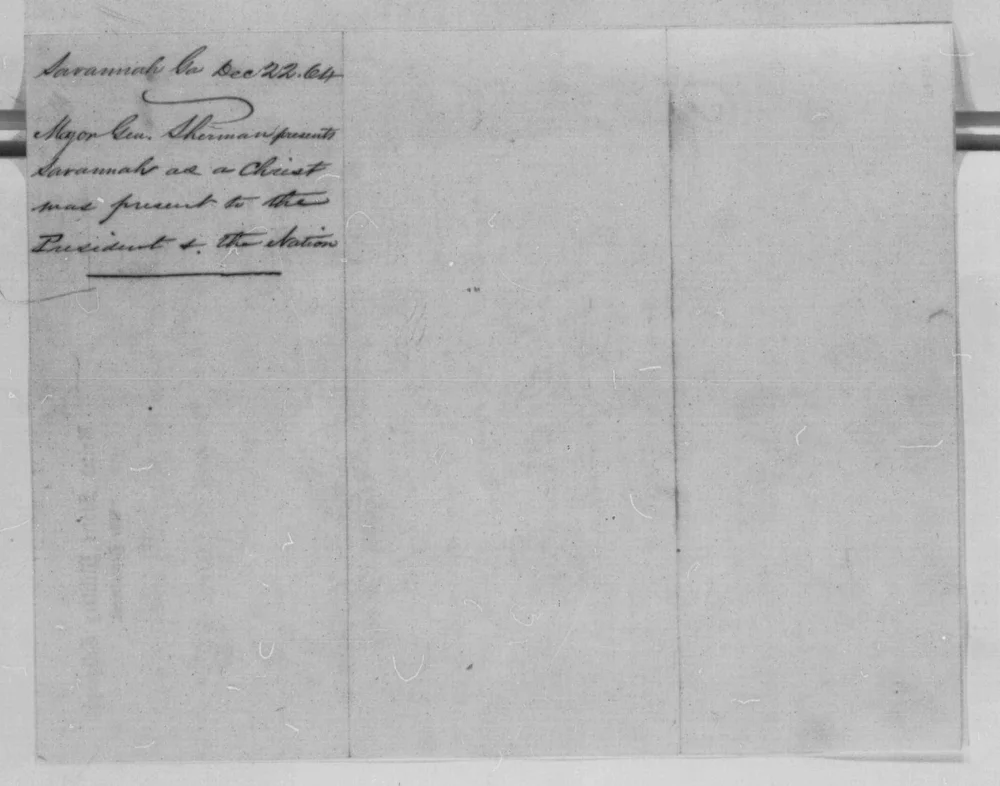 Savannah Ga Dec 22. 64
Major Gen. Sherman presents
Savannah as a Christ
mas present to the
President &. the Nation